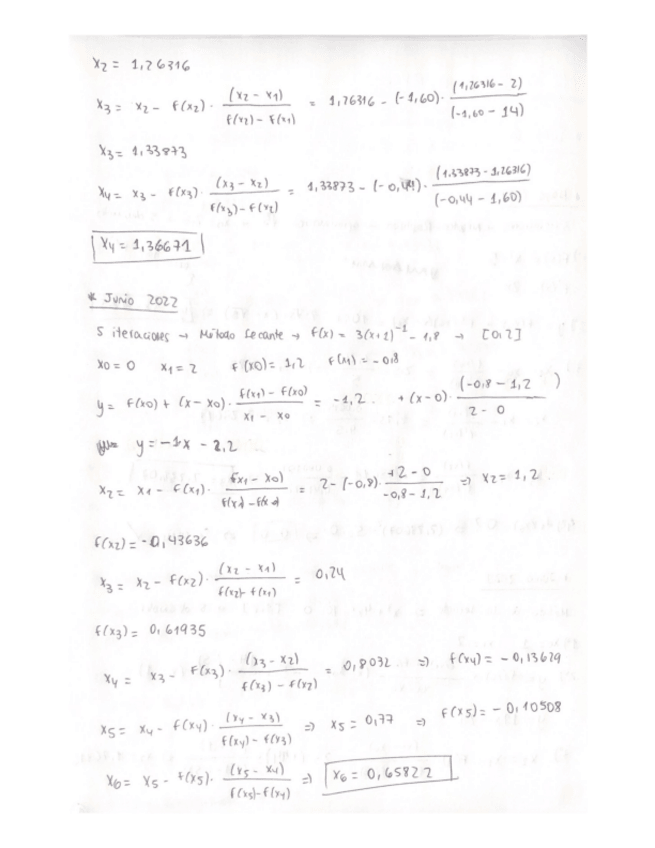 x2 = 1,26316
x3 = x2 - f(x2) · (x2 - x1) / (f(x2) - f(x1)) = 1,26316 - (-1,60) · (1,26316 - 2) / (-1,60 - 14)
x3 = 1,33873
x4 = x3 - f(x3) · (x3 - x2) / (f(x3) - f(x2)) = 1,33873 - (-0,44) · (1.33873 - 1,26316) / (-0,44 - 1,60)
x4 = 1,36671
* Junio 2022
5 iteraciones → Método Secante → f(x) = 3(x+2)^-1 - 1,8 → [0,2]
x0 = 0 x1 = 2 f(x0) = 1,2 f(x1) = -0,8
y = f(x0) + (x - x0) · (f(x1) - f(x0)) / (x1 - x0) = -1,2 + (x-0) · (-0,8 - 1,2) / (2 - 0)
y = -1x - 2,2
x2 = x1 - f(x1) · (x1 - x0) / (f(x1) - f(x0)) = 2 - (-0,8) · (2 - 0) / (-0,8 - 1,2) ⇒ x2 = 1,2
f(x2) = -0,43636
x3 = x2 - f(x2) · (x2 - x1) / (f(x2) - f(x1)) = 0,24
f(x3) = 0,61935
x4 = x3 - f(x3) · (x3 - x2) / (f(x3) - f(x2)) = 0,8032 ⇒ f(x4) = -0,13629
x5 = x4 - f(x4) · (x4 - x3) / (f(x4) - f(x3)) ⇒ x5 = 0,77 ⇒ f(x5) = -0,10508
x6 = x5 - f(x5) · (x5 - x4) / (f(x5) - f(x4)) ⇒ x6 = 0,65822